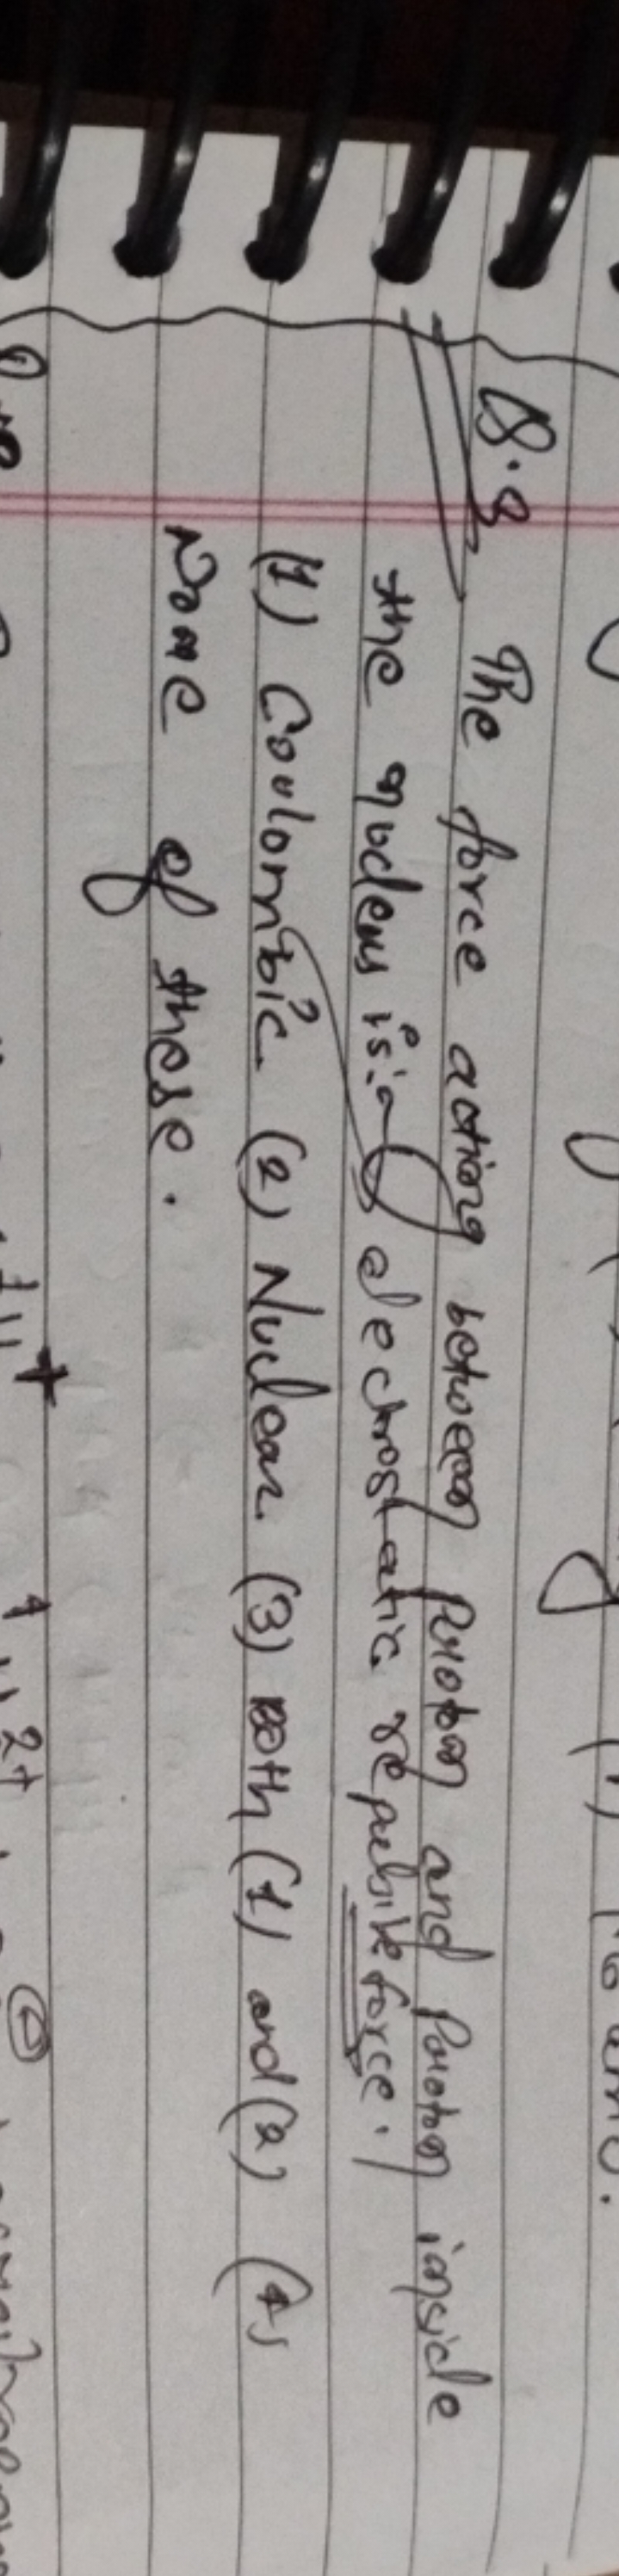 Q.8 The force acting between proton and proton inside
the nucleus is:- electrostatic repulsive force.
(1) Coulombic (2) Nuclear (3) Both (1) and (2) (4)
None of these.